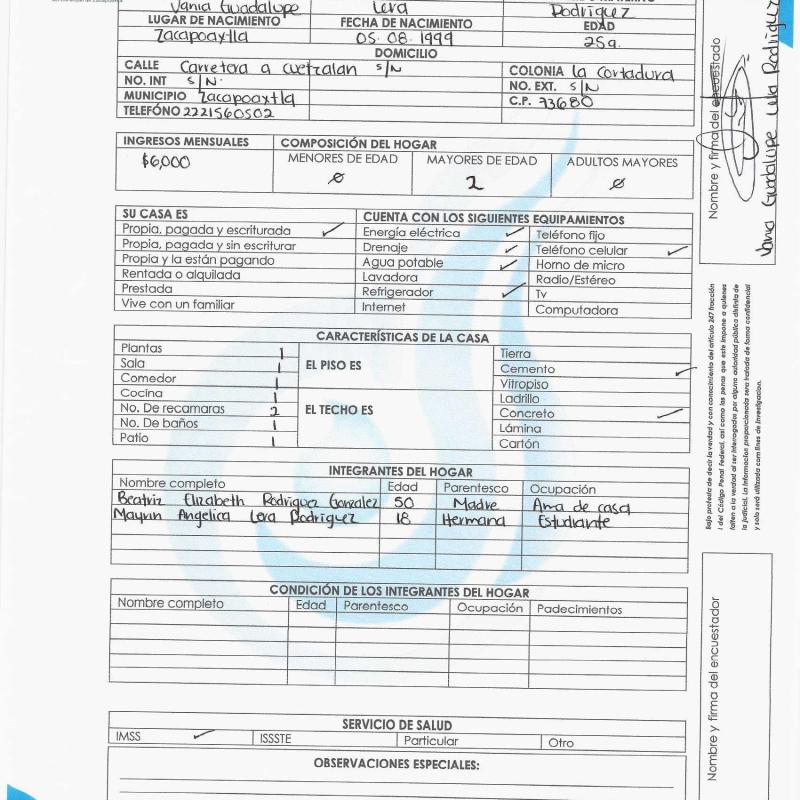 Vania Guadalupe Lera Rodriguez
LUGAR DE NACIMIENTO FECHA DE NACIMIENTO EDAD
Zacapoaxtla 05.08.1999 25a.
DOMICILIO
CALLE Carretera a cuetzalan S/N COLONIA la cortadura
NO. INT S/N NO. EXT. S/N
MUNICIPIO Zacapoaxtla C.P. 73680
TELEFÓNO 2221560502
INGRESOS MENSUALES COMPOSICIÓN DEL HOGAR
$6,000 MENORES DE EDAD MAYORES DE EDAD ADULTOS MAYORES
Ø 2 Ø
SU CASA ES CUENTA CON LOS SIGUIENTES EQUIPAMIENTOS
Propia, pagada y escriturada ✓ Energía eléctrica ✓ Teléfono fijo
Propia, pagada y sin escriturar Drenaje ✓ Teléfono celular ✓
Propia y la están pagando Agua potable ✓ Horno de micro
Rentada o alquilada Lavadora Radio/Estéreo
Prestada Refrigerador ✓ Tv
Vive con un familiar Internet Computadora
CARACTERÍSTICAS DE LA CASA
Plantas 1 EL PISO ES Tierra
Sala 1 Cemento ✓
Comedor 1 Vitropiso
Cocina 1 EL TECHO ES Ladrillo
No. De recamaras 2 Concreto ✓
No. De baños 1 Lámina
Patio 1 Cartón
INTEGRANTES DEL HOGAR
Nombre completo Edad Parentesco Ocupación
Beatriz Elizabeth Rodriguez Gonzalez 50 Madre Ama de casa
Mayrin Angelica Lera Rodriguez 18 Hermana Estudiante
CONDICIÓN DE LOS INTEGRANTES DEL HOGAR
Nombre completo Edad Parentesco Ocupación Padecimientos
SERVICIO DE SALUD
IMSS ✓ ISSSTE Particular Otro
OBSERVACIONES ESPECIALES:
Nombre y firma del encuestado
Vania Guadalupe Lera Rodriguez
Bajo protesta de decir la verdad y con conocimiento del artículo 247 fracción
I del Código Penal Federal, así como las penas que este impone a quienes
falten a la verdad al ser interrogados por alguna autoridad pública distinta de
la judicial. La información proporcionada será tratada de forma confidencial
y solo será utilizada con fines de investigación.
Nombre y firma del encuestador